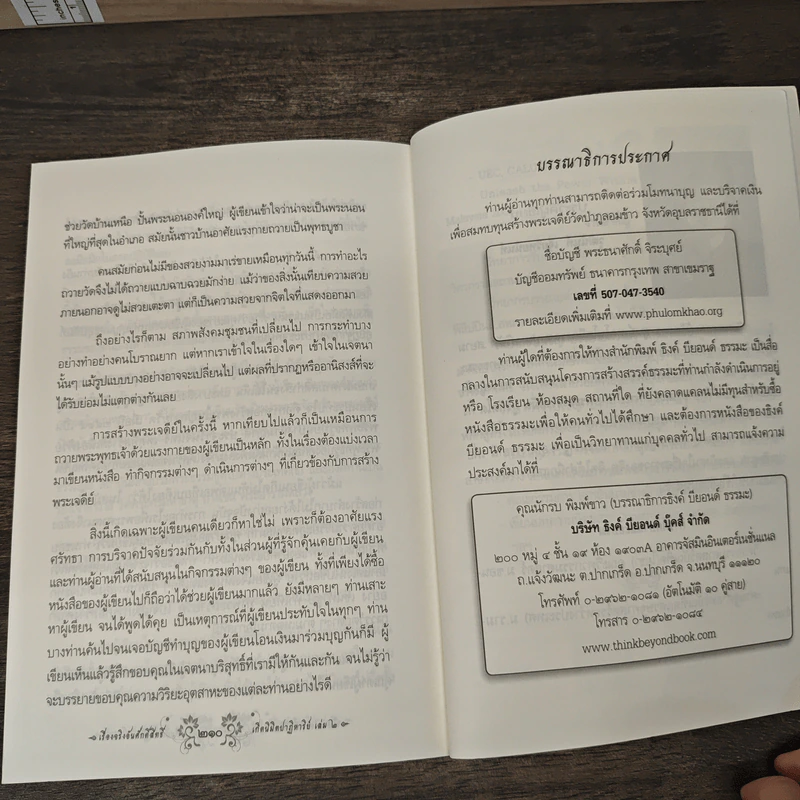 ช่วยวัดบ้านเหนือ ปั้นพระนอนองค์ใหญ่ ผู้เขียนเข้าใจว่าน่าจะเป็นพระนอน
ที่ใหญ่ที่สุดในอำเภอ สมัยนั้นชาวบ้านอาศัยแรงกายถวายเป็นพุทธบูชา
คนสมัยก่อนไม่มีของสวยงามมาเร่ขายเหมือนทุกวันนี้ การทำอะไร
ถวายวัดจึงไม่ได้ถวายแบบฉาบฉวยมักง่าย แม้ว่าของสิ่งนั้นเทียบความสวย
ภายนอกอาจดูไม่สวยเตะตา แต่ก็เป็นความสวยจากจิตใจที่แสดงออกมา
ถึงอย่างไรก็ตาม สภาพสังคมชุมชนที่เปลี่ยนไป การกระทำบาง
อย่างทำอย่างคนโบราณยาก แต่หากเราเข้าใจในเรื่องใดๆ เข้าใจในเจตนา
นั้นๆ แม้รูปแบบบางอย่างอาจจะเปลี่ยนไป แต่ผลที่ปรากฏหรืออานิสงส์ที่จะ
ได้รับย่อมไม่แตกต่างกันเลย
การสร้างพระเจดีย์ในครั้งนี้ หากเทียบไปแล้วก็เป็นเหมือนการ
ถวายพระพุทธเจ้าด้วยแรงกายของผู้เขียนเป็นหลัก ทั้งในเรื่องต้องแบ่งเวลา
มาเขียนหนังสือ ทำกิจกรรมต่างๆ ดำเนินการต่างๆ ที่เกี่ยวข้องกับการสร้าง
พระเจดีย์
สิ่งนี้เกิดเฉพาะผู้เขียนคนเดียวก็หาใช่ไม่ เพราะก็ต้องอาศัยแรง
ศรัทธา การบริจาคปัจจัยร่วมกันกับทั้งในส่วนผู้ที่รู้จักคุ้นเคยกับผู้เขียน
และท่านผู้อ่านที่ได้สนับสนุนในกิจกรรมต่างๆ ของผู้เขียน ทั้งที่เพียงได้ซื้อ
หนังสือของผู้เขียนไปก็ถือว่าได้ช่วยผู้เขียนมากแล้ว ยังมีหลายๆ ท่านเสาะ
หาผู้เขียน จนได้พูดได้คุย เป็นเหตุการณ์ที่ผู้เขียนประทับใจในทุกๆ ท่าน
บางท่านค้นไปจนเจอบัญชีทำบุญของผู้เขียนโอนเงินมาร่วมบุญกันก็มี ผู้
เขียนเห็นแล้วรู้สึกขอบคุณในเจตนาบริสุทธิ์ที่เรามีให้กันและกัน จนไม่รู้ว่า
จะบรรยายขอบคุณความวิริยะอุตสาหะของแต่ละท่านอย่างไรดี
เรื่องจริงอันศักดิ์สิทธิ์ ๒๑๐ เกิดนิมิตปาฏิหาริย์ เล่ม ๒
บรรณาธิการประกาศ
ท่านผู้อ่านทุกท่านสามารถติดต่อร่วมโมทนาบุญ และบริจาคเงิน
เพื่อสมทบทุนสร้างพระเจดีย์วัดป่าภูลอมข้าว จังหวัดอุบลราชธานีได้ที่
ชื่อบัญชี พระธนาศักดิ์ จิระบุศย์
บัญชีออมทรัพย์ ธนาคารกรุงเทพ สาขาเขมราฐ
เลขที่ 507-047-3540
รายละเอียดเพิ่มเติมที่ www.phulomkhao.org
ท่านผู้ใดที่ต้องการให้ทางสำนักพิมพ์ ธิงค์ บียอนด์ ธรรมะ เป็นสื่อ
กลางในการสนับสนุนโครงการสร้างสรรค์ธรรมะที่ท่านกำลังดำเนินการอยู่
หรือ โรงเรียน ห้องสมุด สถานที่ใด ที่ยังคลาดแคลนไม่มีทุนสำหรับซื้อ
หนังสือธรรมะเพื่อให้คนทั่วไปได้ศึกษา และต้องการหนังสือของธิงค์
บียอนด์ ธรรมะ เพื่อเป็นวิทยาทานแก่บุคคลทั่วไป สามารถแจ้งความ
ประสงค์มาได้ที่
คุณนักรบ พิมพ์ขาว (บรรณาธิการธิงค์ บียอนด์ ธรรมะ)
บริษัท ธิงค์ บียอนด์ บุ๊คส์ จำกัด
๒๐๐ หมู่ ๔ ชั้น ๑๙ ห้อง ๑๙๐๓A อาคารจัสมินอินเตอร์เนชั่นแนล
ถ.แจ้งวัฒนะ ต.ปากเกร็ด อ.ปากเกร็ด จ.นนทบุรี ๑๑๑๒๐
โทรศัพท์ ๐-๒๙๖๒-๑๐๘๑ (อัตโนมัติ ๑๐ คู่สาย)
โทรสาร ๐-๒๙๖๒-๑๐๘๔
www.thinkbeyondbook.com